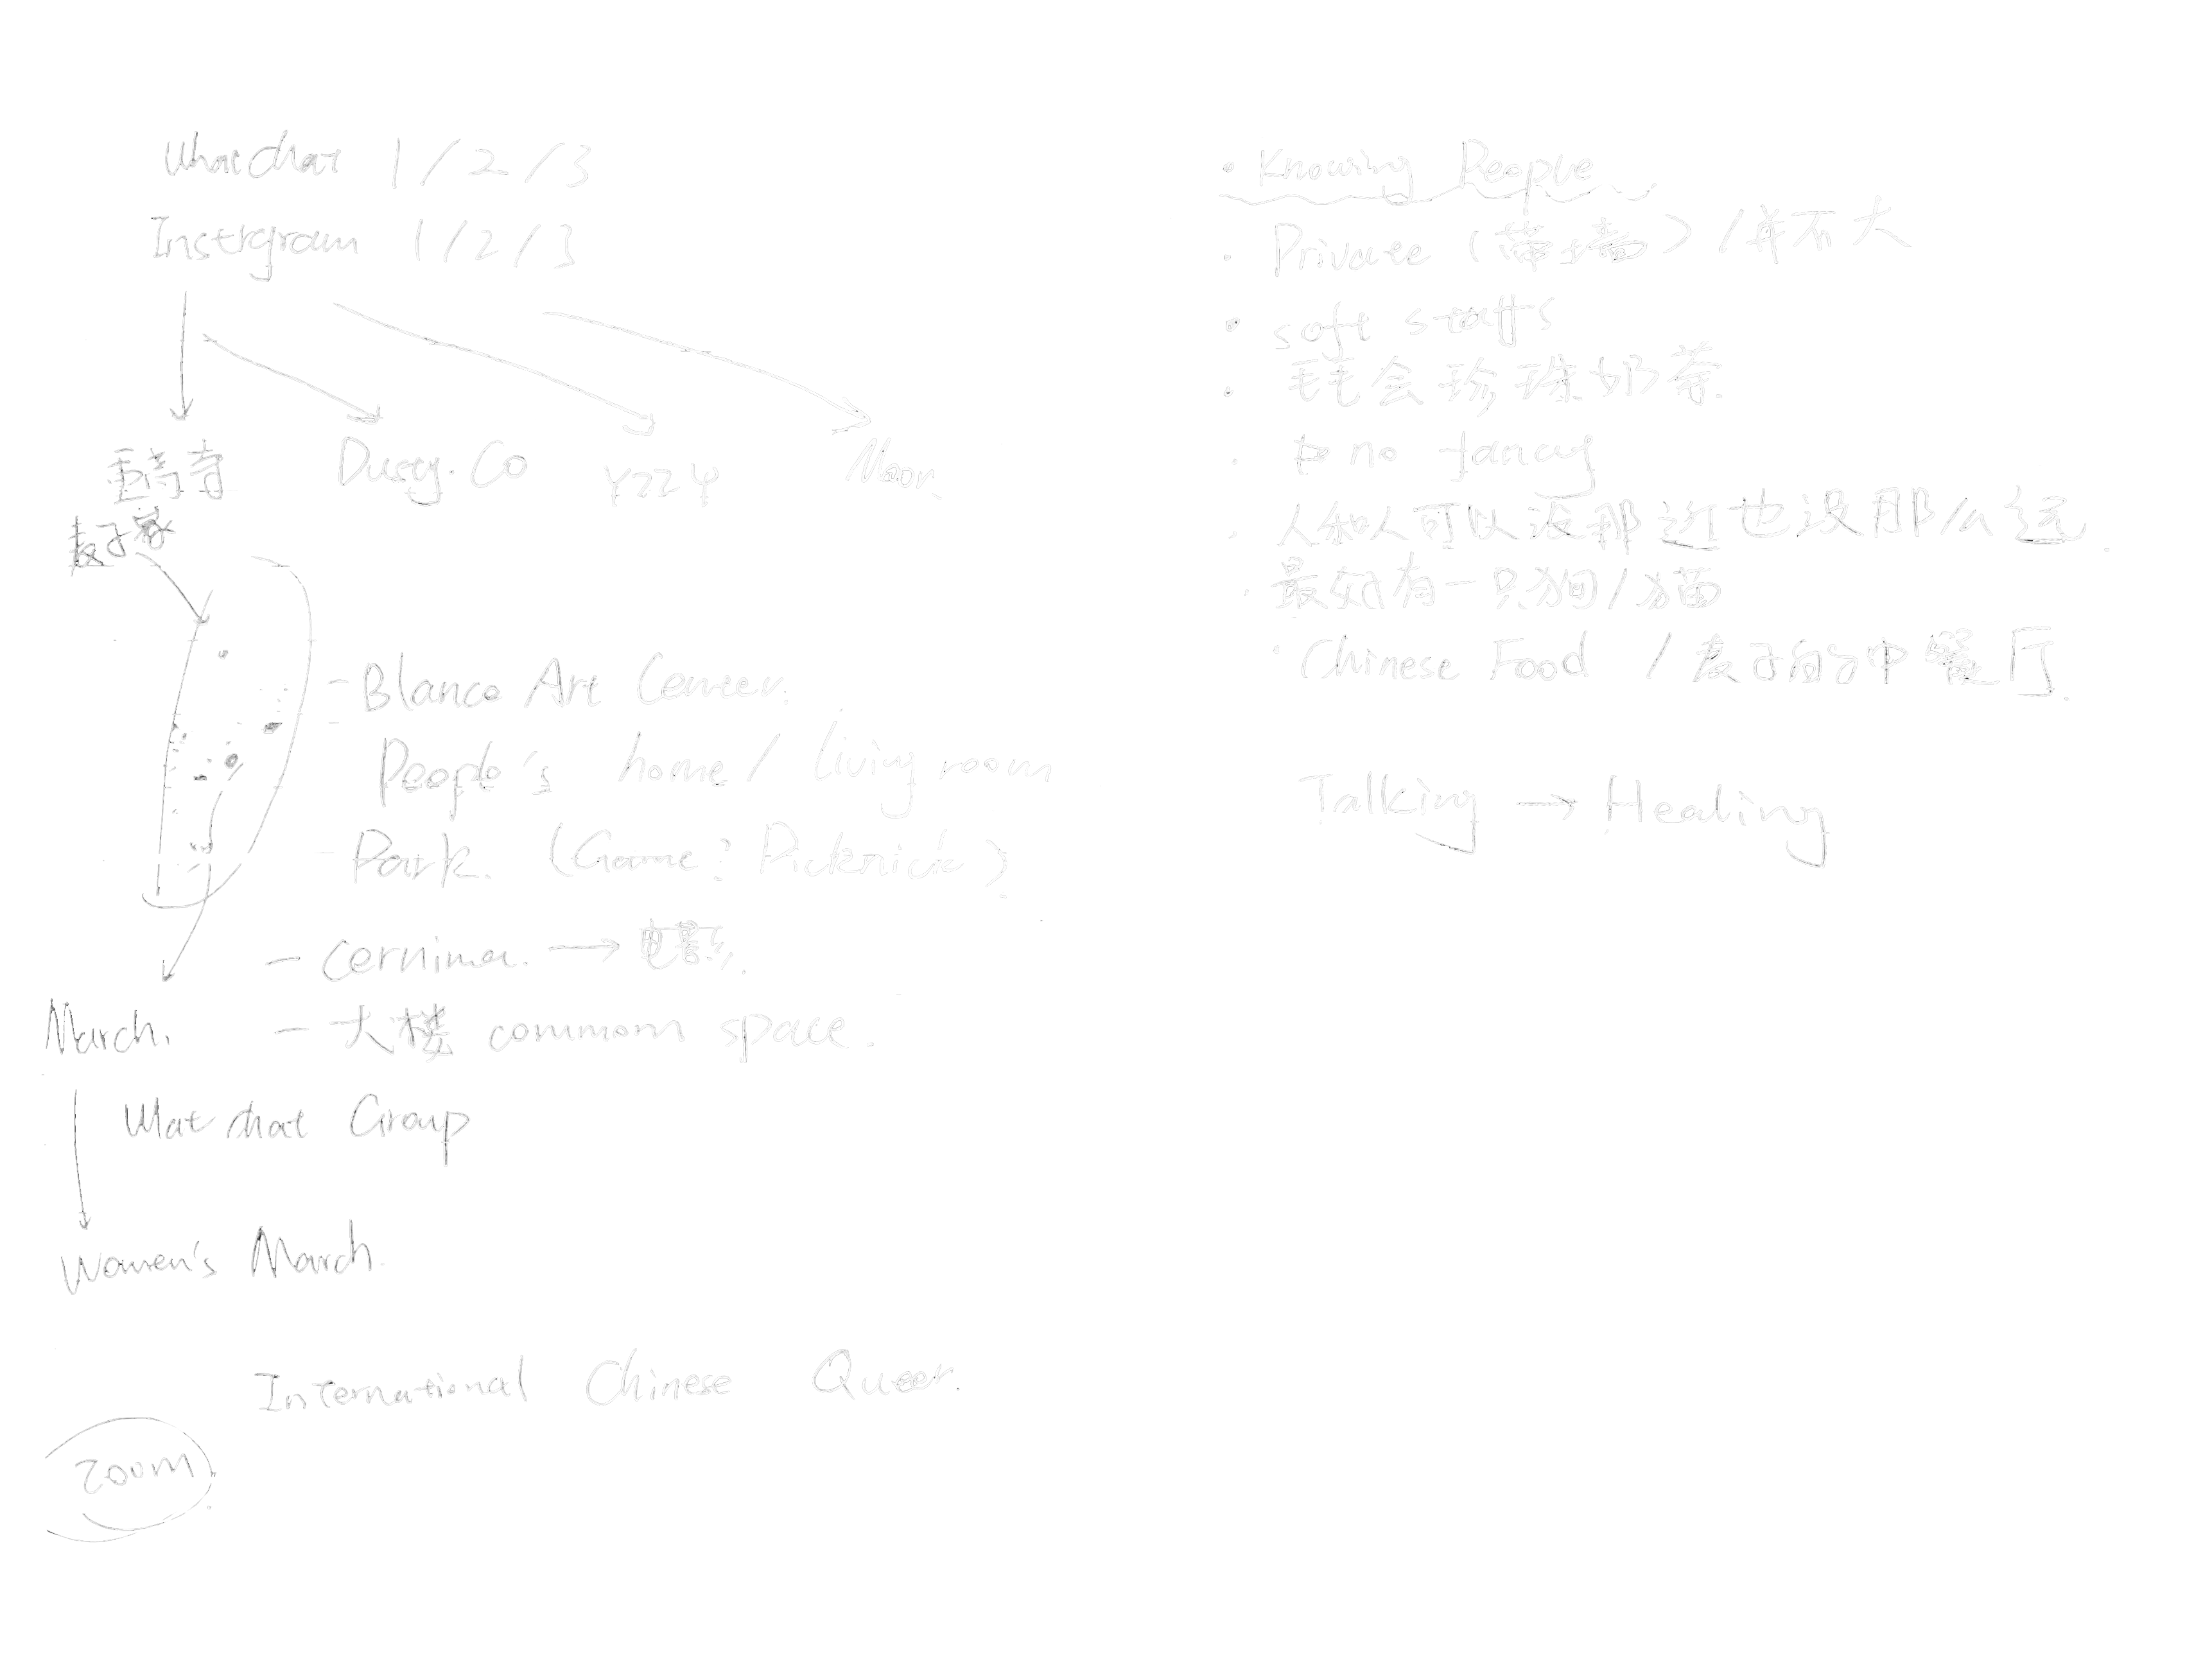 Whatchat 1/2/3
Instrgram 1/2/3
Dusty.Co
YZZY
Noon.
- Blance Art Center.
People's home / Living room
- Park. (Game? Picknick)
- Cernima. → 电影.
March.
- 大楼 common space.
Whatchat Group
Women's March.
International Chinese Queer.
Zoom
• Knowing People
• Private (带墙) / 并不大
• soft staffs
• 毛毛会珍珠奶茶.
• no fancy
• 人和人可以没那近也没那么远.
• 最好有一只狗/猫
• Chinese Food / 表子的中餐厅.
Talking → Healing